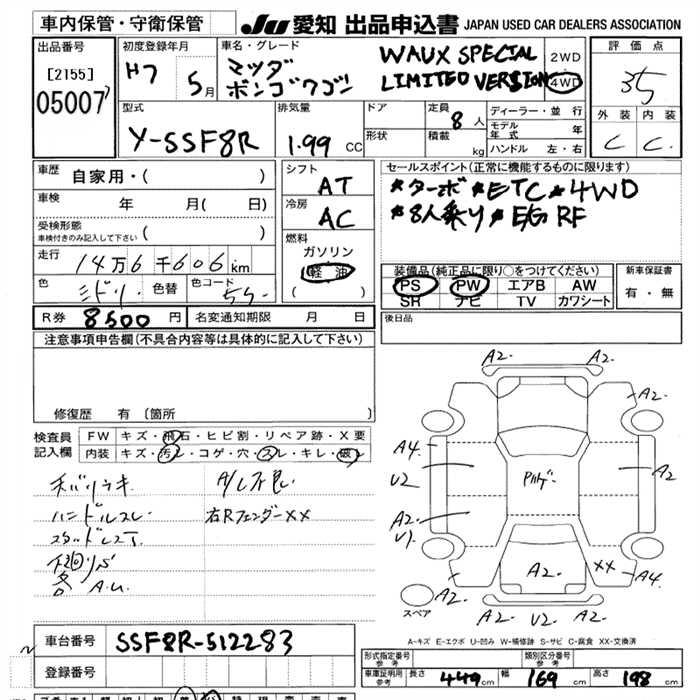 車内保管・守衛保管
JU 愛知 出品申込書 JAPAN USED CAR DEALERS ASSOCIATION
出品番号
[2155]
05007
初度登録年月
H7 5月
車名・グレード
マツダ
ボンゴワゴン
WAUX SPECIAL
LIMITED VERSION
2WD
4WD
評価点
3.5
外装 内装
C C
型式
Y-SSF8R
排気量
1.99 CC
ドア
形状
定員 8人
積載 kg
ディーラー・並行
モデル年式 年
ハンドル 左・右
車歴
自家用・( )
車検 年 月( 日)
受検形態
車検付きのみ記入して下さい ( )
走行
14万6千606km
色 ミドリ 色替 色コード
シフト
AT
冷房
AC
燃料
ガソリン
軽油
( )
セールスポイント(正常に機能するものに限ります)
*ターボ *ETC *4WD
*8人乗り *E/G RF
装備品(純正品に限り○をつけてください)
PS PW エアB AW
SR ナビ TV カワシート
新車保証書
有・無
R券 8500円 名変通知期限 月 日
後日品
注意事項申告欄(不具合内容等は具体的に記入して下さい)
修復歴 有 〔箇所 〕
検査員記入欄
FW キズ・飛石・ヒビ割・リペア跡・X要
内装 キズ・汚レ・コゲ・穴・スレ・キレ・破レ
ハンドルスレ
A/C不良
右Rフェンダーxx
各A.U.
A2. A2.
A2.
A4.
U2
A2
A2.
U1.
Aルゲー
A2.
XX
A4.
A2.
A2. U2 A2.
スペア
A-キズ E-エクボ U-凹み W-補修跡 S-サビ C-腐食 XX-交換済
車台番号 SSF8R-512283
登録番号
形式指定番号 参考
類別区分番号 参考
車庫証明用参考 長さ 449cm 幅 169cm 高さ 198cm